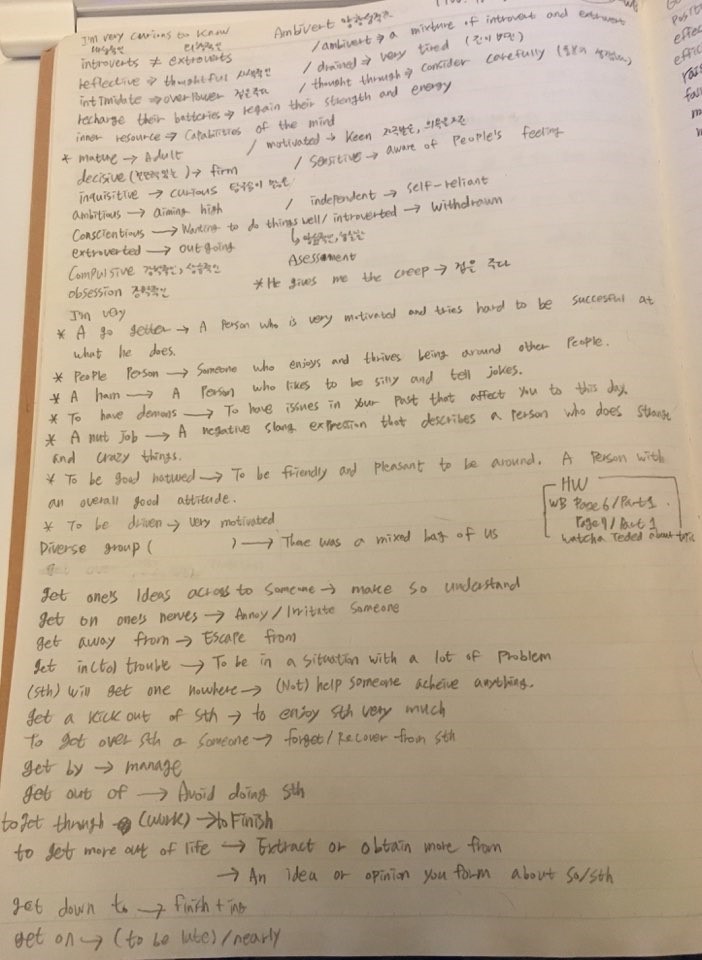 I'm very curious to know
Ambivert 양향성격자
내성적인 외향적인
introverts ≠ extroverts / ambivert → a mixture of introvert and extrovert
reflective → thoughtful 사색적인 / drained → very tired (진이 빠진)
intimidate → overpower 겁을주다 / thought through → consider carefully
recharge their batteries → regain their strength and energy
inner resource → Capabilities of the mind
* mature → Adult / motivated → keen
decisive ( ) → firm / Sensitive → aware of People's feeling
inquisitive → curious 탐구심이 많은
ambitious → aiming high / independent → self-reliant
Conscientious → Wanting to do things well / introverted → Withdrawn
extroverted → outgoing
Asessment
Compulsive 강박적인,
obsession 강박적인 * He gives me the creep → 겁은 주다
I'm very
* A go getter → A Person who is very motivated and tries hard to be succesful at
what he does.
* People Person → Someone who enjoys and thrives being around other People.
* A ham → A Person who likes to be silly and tell jokes.
* To have demons → To have issues in Your Past that affect You to this day.
* A nut job → A negative slang expression that describes a Person who does strange
and crazy things.
* To be good natured → To be friendly and pleasant to be around. A Person with
an overall good attitude.
HW
WB Page 6 / Part 1
Page 9 / Part 1
watcha Teded about
* To be driven → very motivated
Diverse group ( ) → There was a mixed bag of us
get one's Ideas across to Someone → make so understand
get on one's nerves → Annoy / Irritate Someone
get away from → Escape from
get in(to) trouble → To be in a situation with a lot of Problem
(sth) will get one nowhere → (Not) help someone acheive anything.
get a kick out of sth → to enjoy sth very much
To got over sth o someone → forget / Recover from sth
get by → manage
get out of → Avoid doing sth
to get through (work) → to Finish
to get more out of life → Extract or obtain more from
→ An idea or opinion you form about so/sth
get down to → finish + ing
get on → (to be late) / nearly